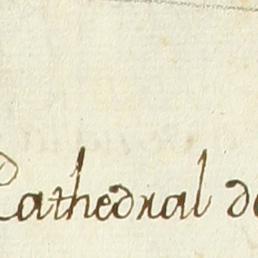 Cathedral de